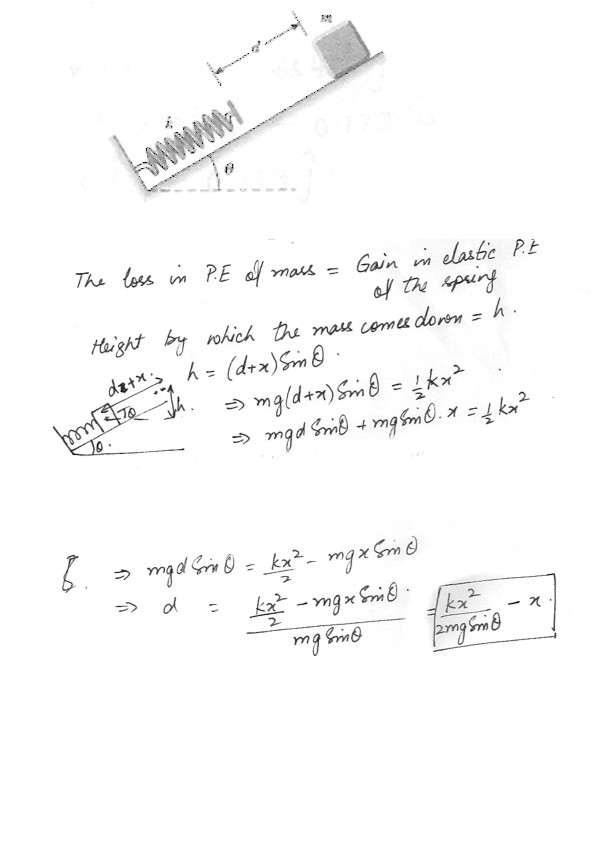 m
d
k
θ
The loss in P.E of mass = Gain in elastic P.E
of the spring
Height by which the mass comes down = h.
h = (d+x) Sinθ.
d+x.
h.
θ.
⇒ mg(d+x) Sinθ = ½ kx²
⇒ mgd Sinθ + mg Sinθ. x = ½ kx²
⇒ mgd Sinθ = kx²/2 - mgx Sinθ
⇒ d = (kx²/2 - mgx Sinθ.)/(mg Sinθ) = kx²/(2mg Sinθ) - x.